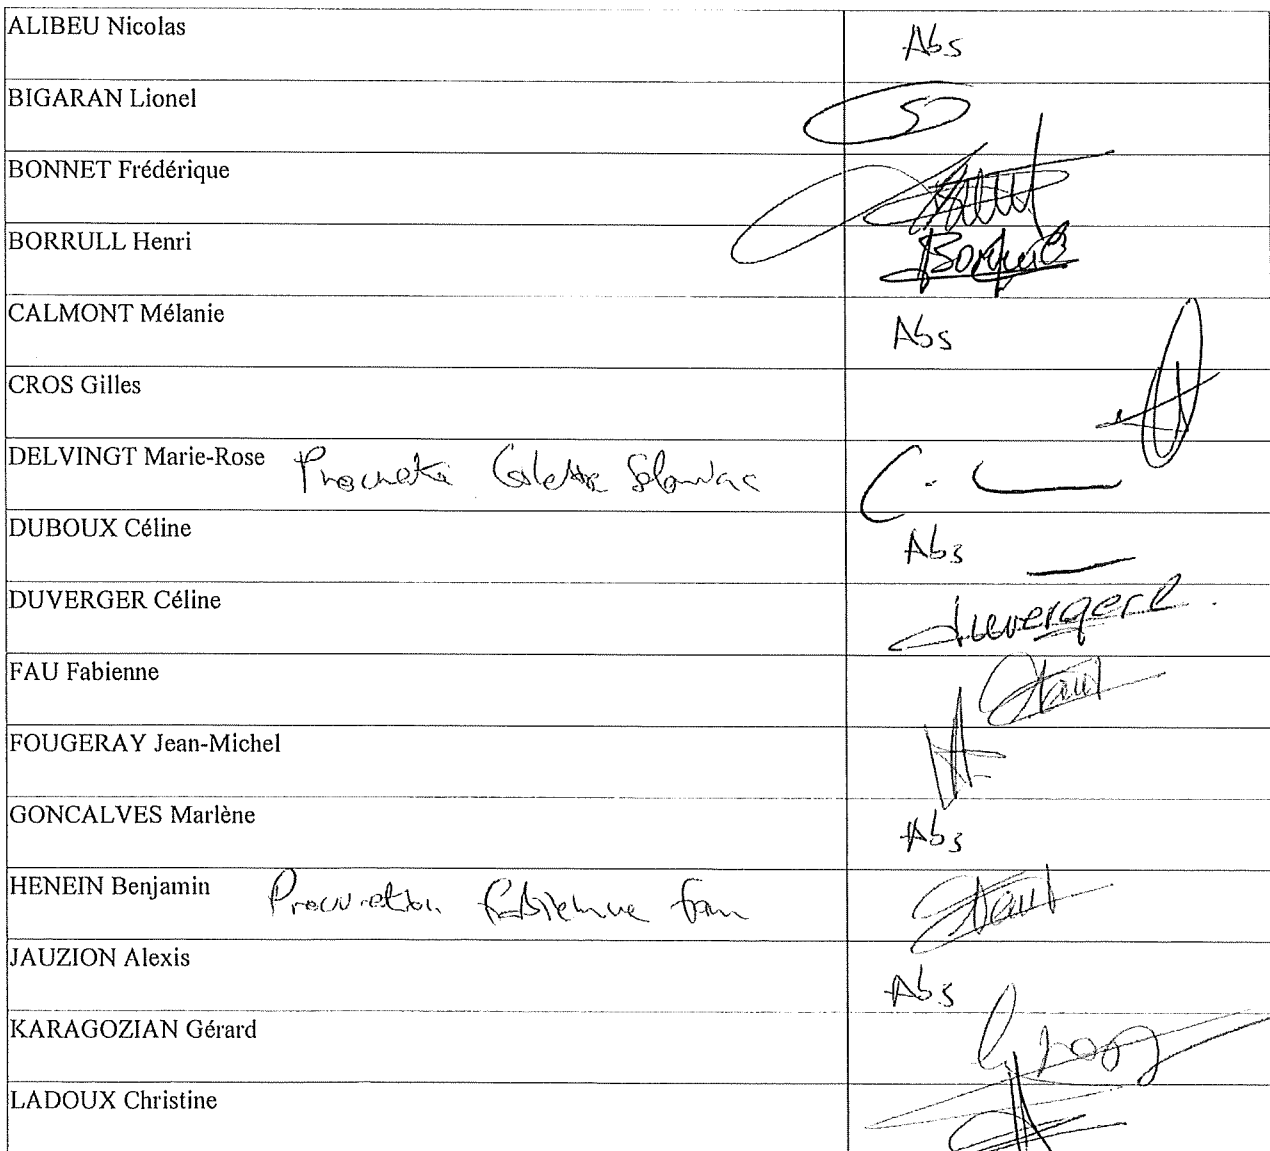 ALIBEU Nicolas Abs
BIGARAN Lionel
BONNET Frédérique
BORRULL Henri
CALMONT Mélanie Abs
CROS Gilles
DELVINGT Marie-Rose Colette
DUBOUX Céline Abs
DUVERGER Céline duverger C
FAU Fabienne
FOUGERAY Jean-Michel
GONCALVES Marlène Abs
HENEIN Benjamin Procuration Fabienne Fau
JAUZION Alexis Abs
KARAGOZIAN Gérard
LADOUX Christine